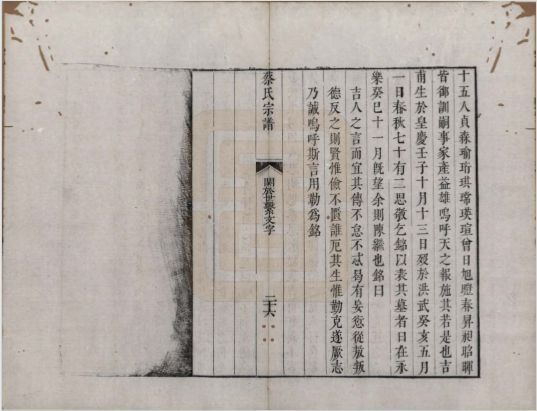 十五人貞森瑜珩琪瑺瑛瑄曾日旭曜春昇昶昭暉
皆御訓嗣事家產益雄嗚呼天之報施其若是也吉
甫生於皇慶壬子十月十三日歿於洪武癸亥五月
一日春秋七十有二思敬乞銘以表其墓者日在永
樂癸巳十一月旣望余則陳繼也銘曰
吉人之言而宜其傳不怠不忒曷有妥愆從敖叛
德反之則賢惟儉不匱誰厄其生惟勤克遂厥志
乃誠嗚呼斯言用勒爲銘
蔡氏宗譜
關於世繫文字
二十六